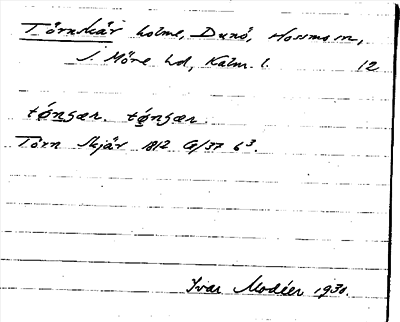 Törnskär holme, Dunö, Hossmo sn,
S. Möre hd, Kalm. l. 12
tó̱nʂær. tó̱nʂær.
Törn Skjär 1812 G/37 6³.
Ivar Modéer 1930.